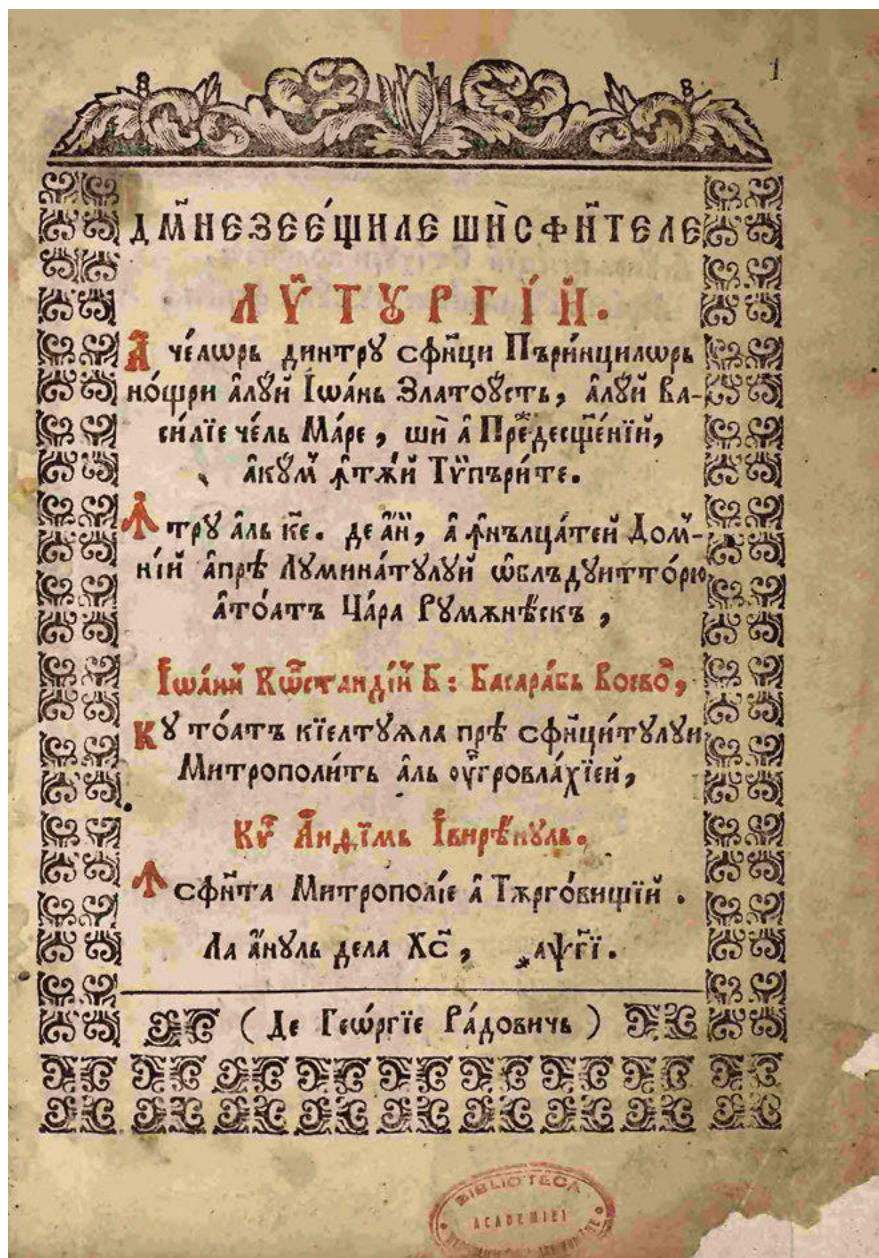 1
ДМ҃НЕЗЕЕ́ЩИЛЕ ШЍ СФИ҃ТЕЛЕ
ЛѴ҆ТꙊРГІ́Й.
А҆ че́лѡрь динтрꙋ сфи҃ци Пъри́нцилѡрь
но́щри а҆лꙋ́й І҆ѡа́нь Златоꙋ́сть, а҆лꙋ́й Ва-
си́лїе че́ль Ма́ре, шѝ а҆ Пре́ж̾десщ҃е́нїй,
а҆кꙋ́м ꙟ҆тѫ́й Тѷпъри́те.
Ꙟ҆трꙋ а҆́ль к҃е. де а҆́н, а҆ ꙟ҆нълца́тей До́м-
ні́й а҆прѣ̀ Лꙋмина́тꙋлꙋй ѡ҆блъдꙋитто́рю
а҆то́атъ Ца́ра Рꙋмѫнѣ́скъ,
І҆ѡа́нн Кѡ҆стандї́н Б: Басара́бь Воево҃д,
Кꙋ то́атъ кїелтꙋѧла прѣ̀ сфи҃ци́тꙋлꙋй
Митрополи́ть а҆́ль ѹ҆гровла́хїей,
Кѵ҃р А҆нѳїмь І҆вирѣ́нꙋль.
Ꙟ҆ сфи҃та Митропо́лїе а҆ Тѫрго́вищїй.
Ла а҆́нꙋль дела Хс҃, ҂аѱ҃гї.
( Де Геѡ́ргїе Ра́довичь )
BIBLIOTECA
ACADEMIEI